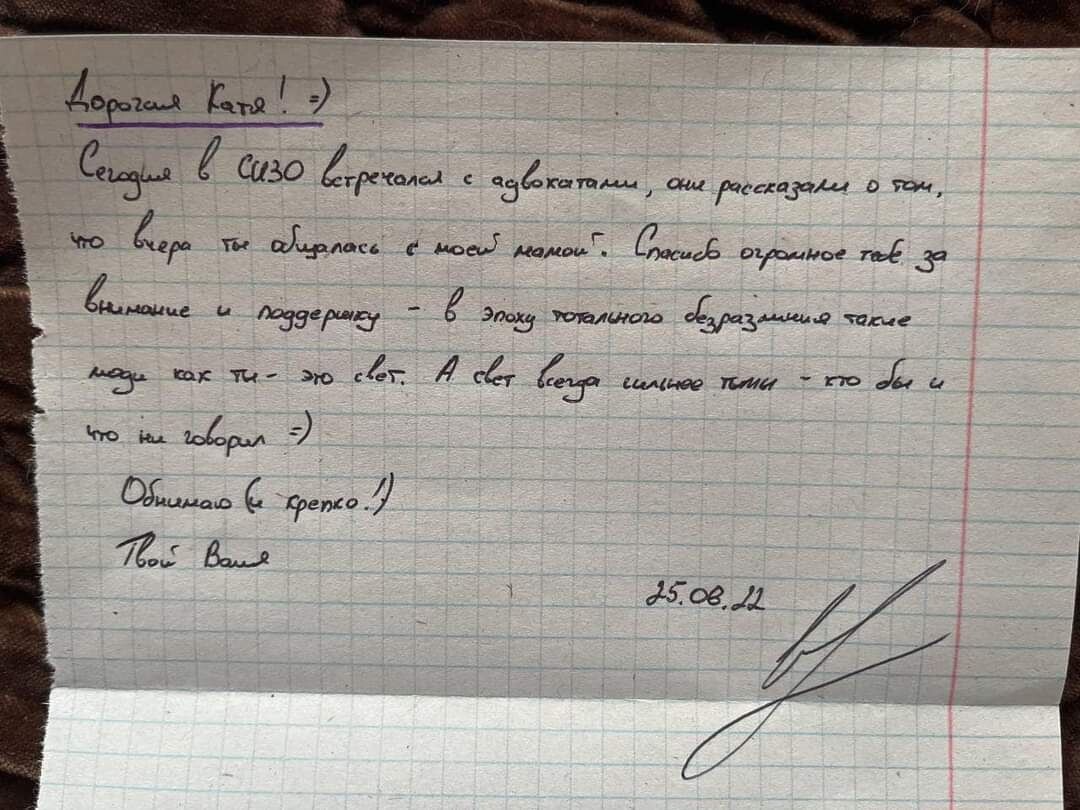 Дорогая Катя! =)
Сегодня в СИЗО встречался с адвокатами, они рассказали о том,
что вчера ты общалась с моей мамой. Спасибо огромное тебе за
внимание и поддержку - в эпоху тотального безразличия такие
люди как ты - это свет. А свет всегда сильнее тьмы - кто бы и
что ни говорил =)
Обнимаю (и крепко!)
Твой Ваня
25.08.22